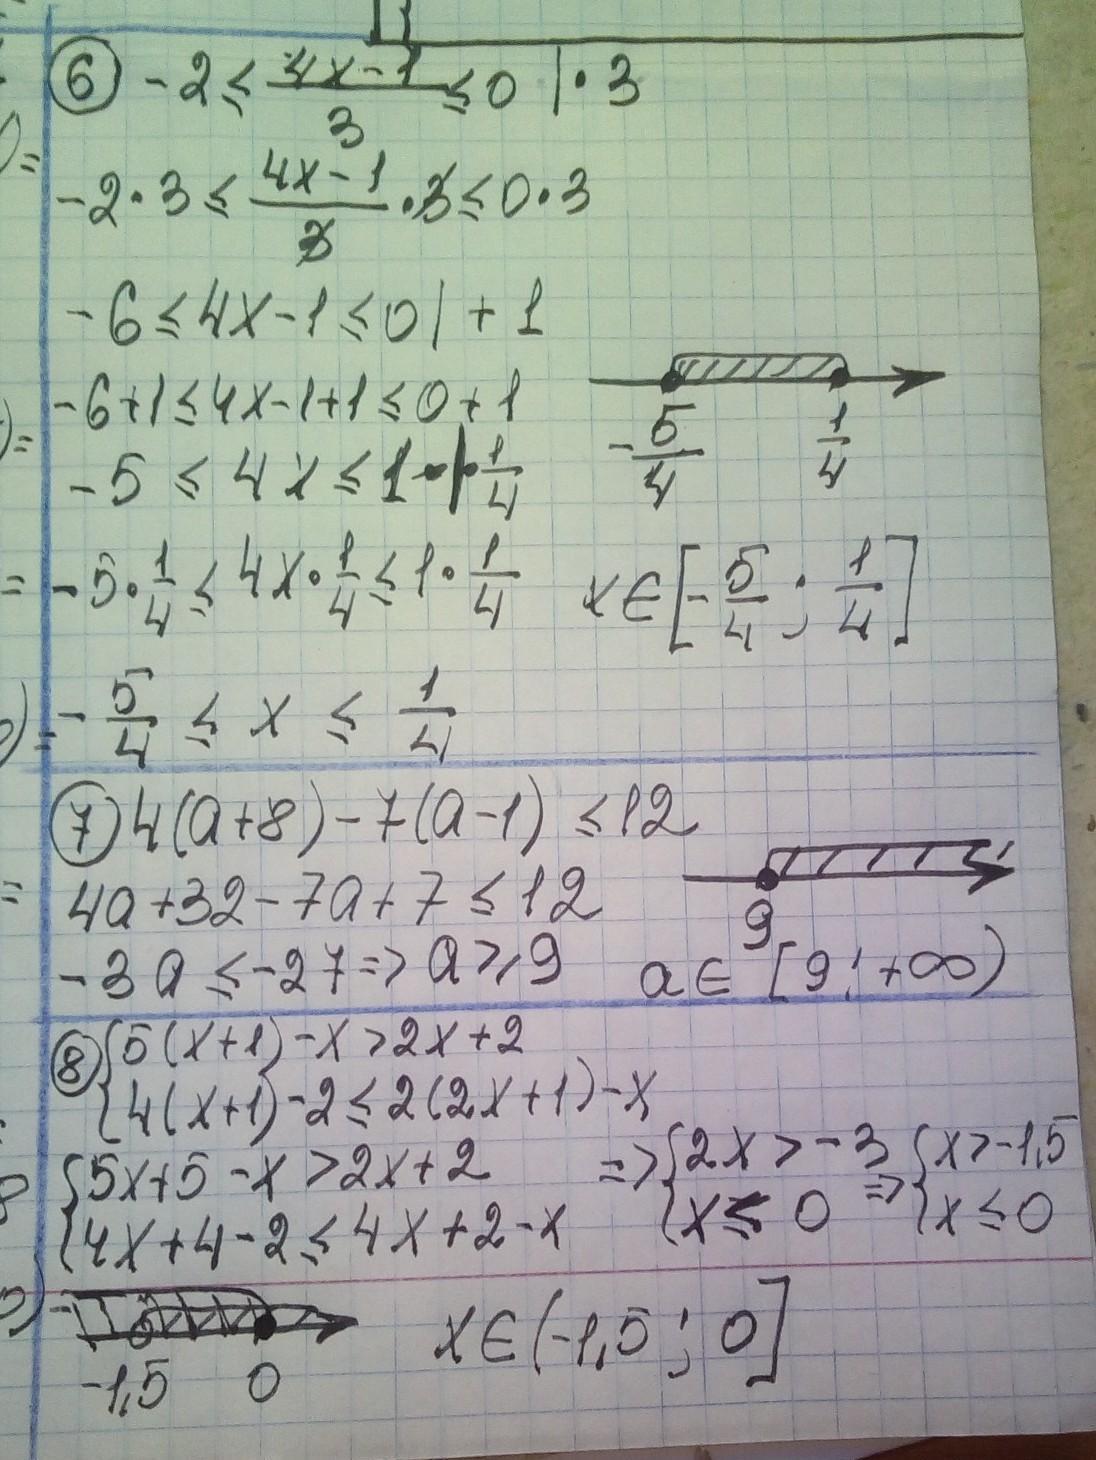 6 -2 ≤ (4x-1)/3 ≤ 0 | · 3
-2 · 3 ≤ (4x-1)/3 · 3 ≤ 0 · 3
-6 ≤ 4x-1 ≤ 0 | + 1
-6+1 ≤ 4x-1+1 ≤ 0+1
-5 ≤ 4x ≤ 1 | · 1/4
-5/4 1/4
-5 · 1/4 ≤ 4x · 1/4 ≤ 1 · 1/4
x ∈ [-5/4 ; 1/4]
-5/4 ≤ x ≤ 1/4
7 4(a+8) - 7(a-1) ≤ 12
4a+32-7a+7 ≤ 12
9
-3a ≤ -27 => a ≥ 9
a ∈ [9; +∞)
8 { 5(x+1)-x > 2x+2
4(x+1)-2 ≤ 2(2x+1)-x
{ 5x+5-x > 2x+2 => { 2x > -3 => { x > -1,5
4x+4-2 ≤ 4x+2-x x ≤ 0 x ≤ 0
-1,5 0
x ∈ (-1,5 ; 0]